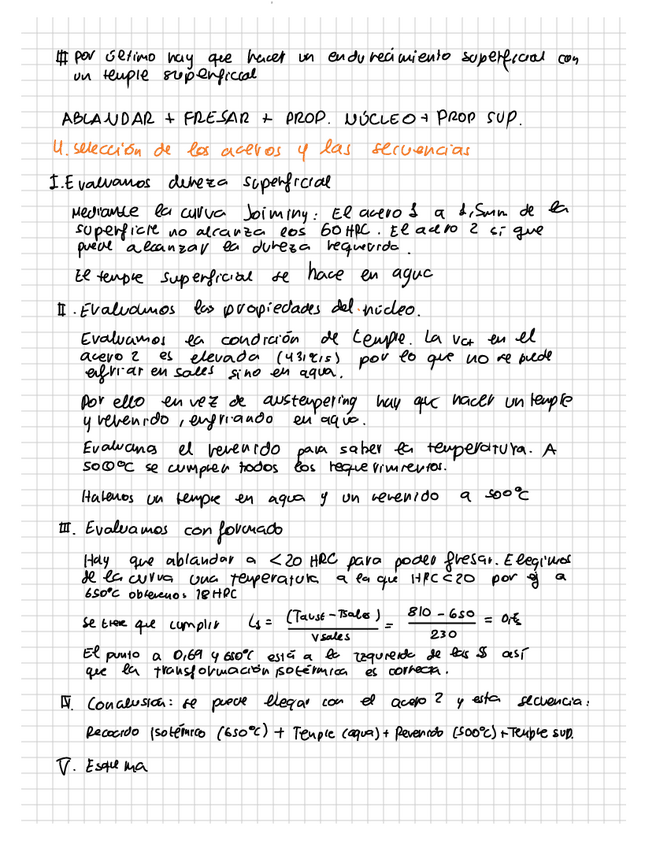 III por último hay que hacer un endurecimiento superficial con
un temple superficial
ABLANDAR + FRESAR + PROP. NÚCLEO + PROP SUP.
4. selección de los aceros y las secuencias
I. Evaluamos dureza superficial
Mediante la curva Joiminy: El acero 1 a 1,5mm de la
superficie no alcanza los 60 HRC. El acero 2 si que
puede alcanzar la dureza requerida.
El temple superficial se hace en agua
II. Evaluamos las propiedades del núcleo.
Evaluamos la condición de temple. La Vcr en el
acero 2 es elevada (43) por lo que no se puede
enfriar en sales sino en agua.
Por ello en vez de austempering hay que hacer un temple
y revenido, enfriando en agua.
Evaluamos el revenido para saber la temperatura. A
500ºC se cumplen todos los requerimientos.
Hacemos un temple en agua y un revenido a 500ºC
III. Evaluamos conformado
Hay que ablandar a <20 HRC para poder fresar. Elegimos
de la curva una temperatura a la que HRC<20 por ej a
650ºC obtenemos 18HRC
se tiene que cumplir ts = (Taust - Tsales) / Vsales = 810 - 650 / 230 = 0,
El punto a 0,69 y 650ºC está a la izquierda de las S así
que la transformación isotérmica es correcta.
IV. Conclusión: se puede llegar con el acero 2 y esta secuencia:
Recocido Isotérmico (650ºC) + Temple (agua) + Revenido (500ºC) + Temple sup.
V. Esquema